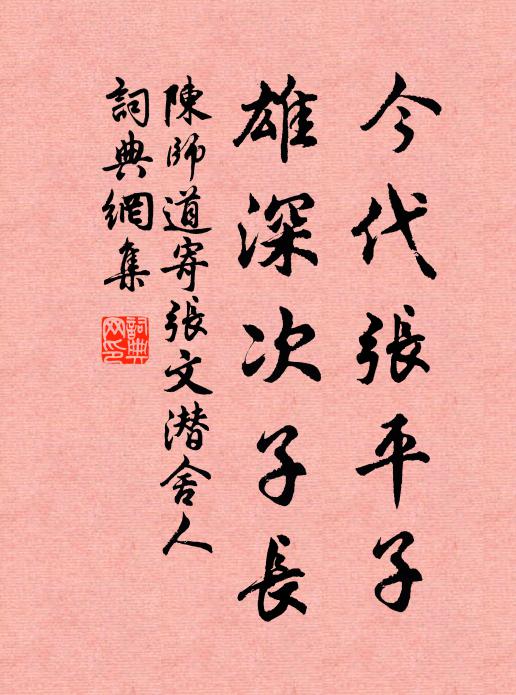 今代張平子
雄深次子長
陳師道寄張文潛舍人
詞典網集
詞典网印